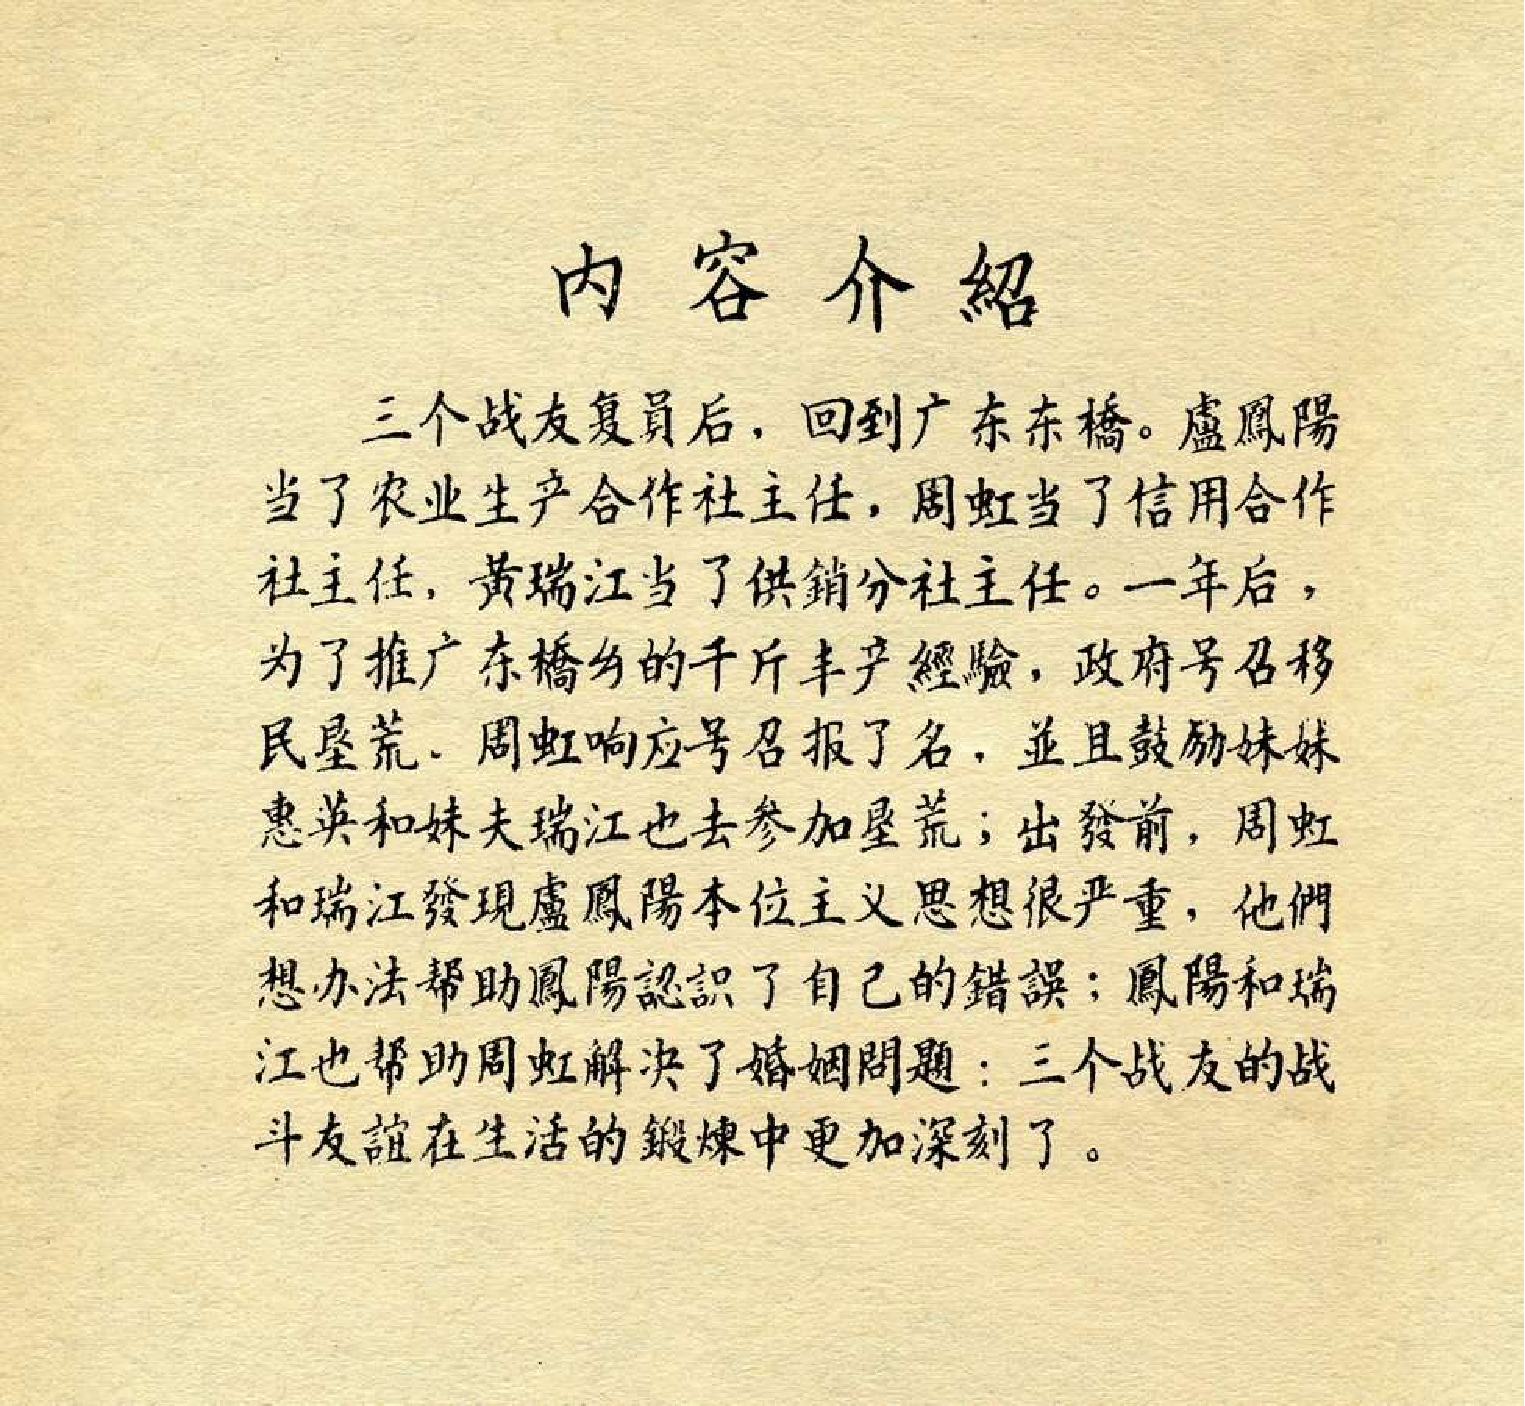 内容介紹
三个战友复員后，回到广东东橋。盧鳳陽
当了农业生产合作社主任，周虹当了信用合作
社主任，黄瑞江当了供銷分社主任。一年后，
为了推广东橋乡的千斤丰产經驗，政府号召移
民垦荒．周虹响应号召报了名，並且鼓励妹妹
惠英和妹夫瑞江也去参加垦荒；出發前，周虹
和瑞江發現盧鳳陽本位主义思想很严重，他們
想办法帮助鳳陽認識了自己的錯誤；鳳陽和瑞
江也帮助周虹解决了婚姻問題：三个战友的战
斗友誼在生活的鍛煉中更加深刻了。